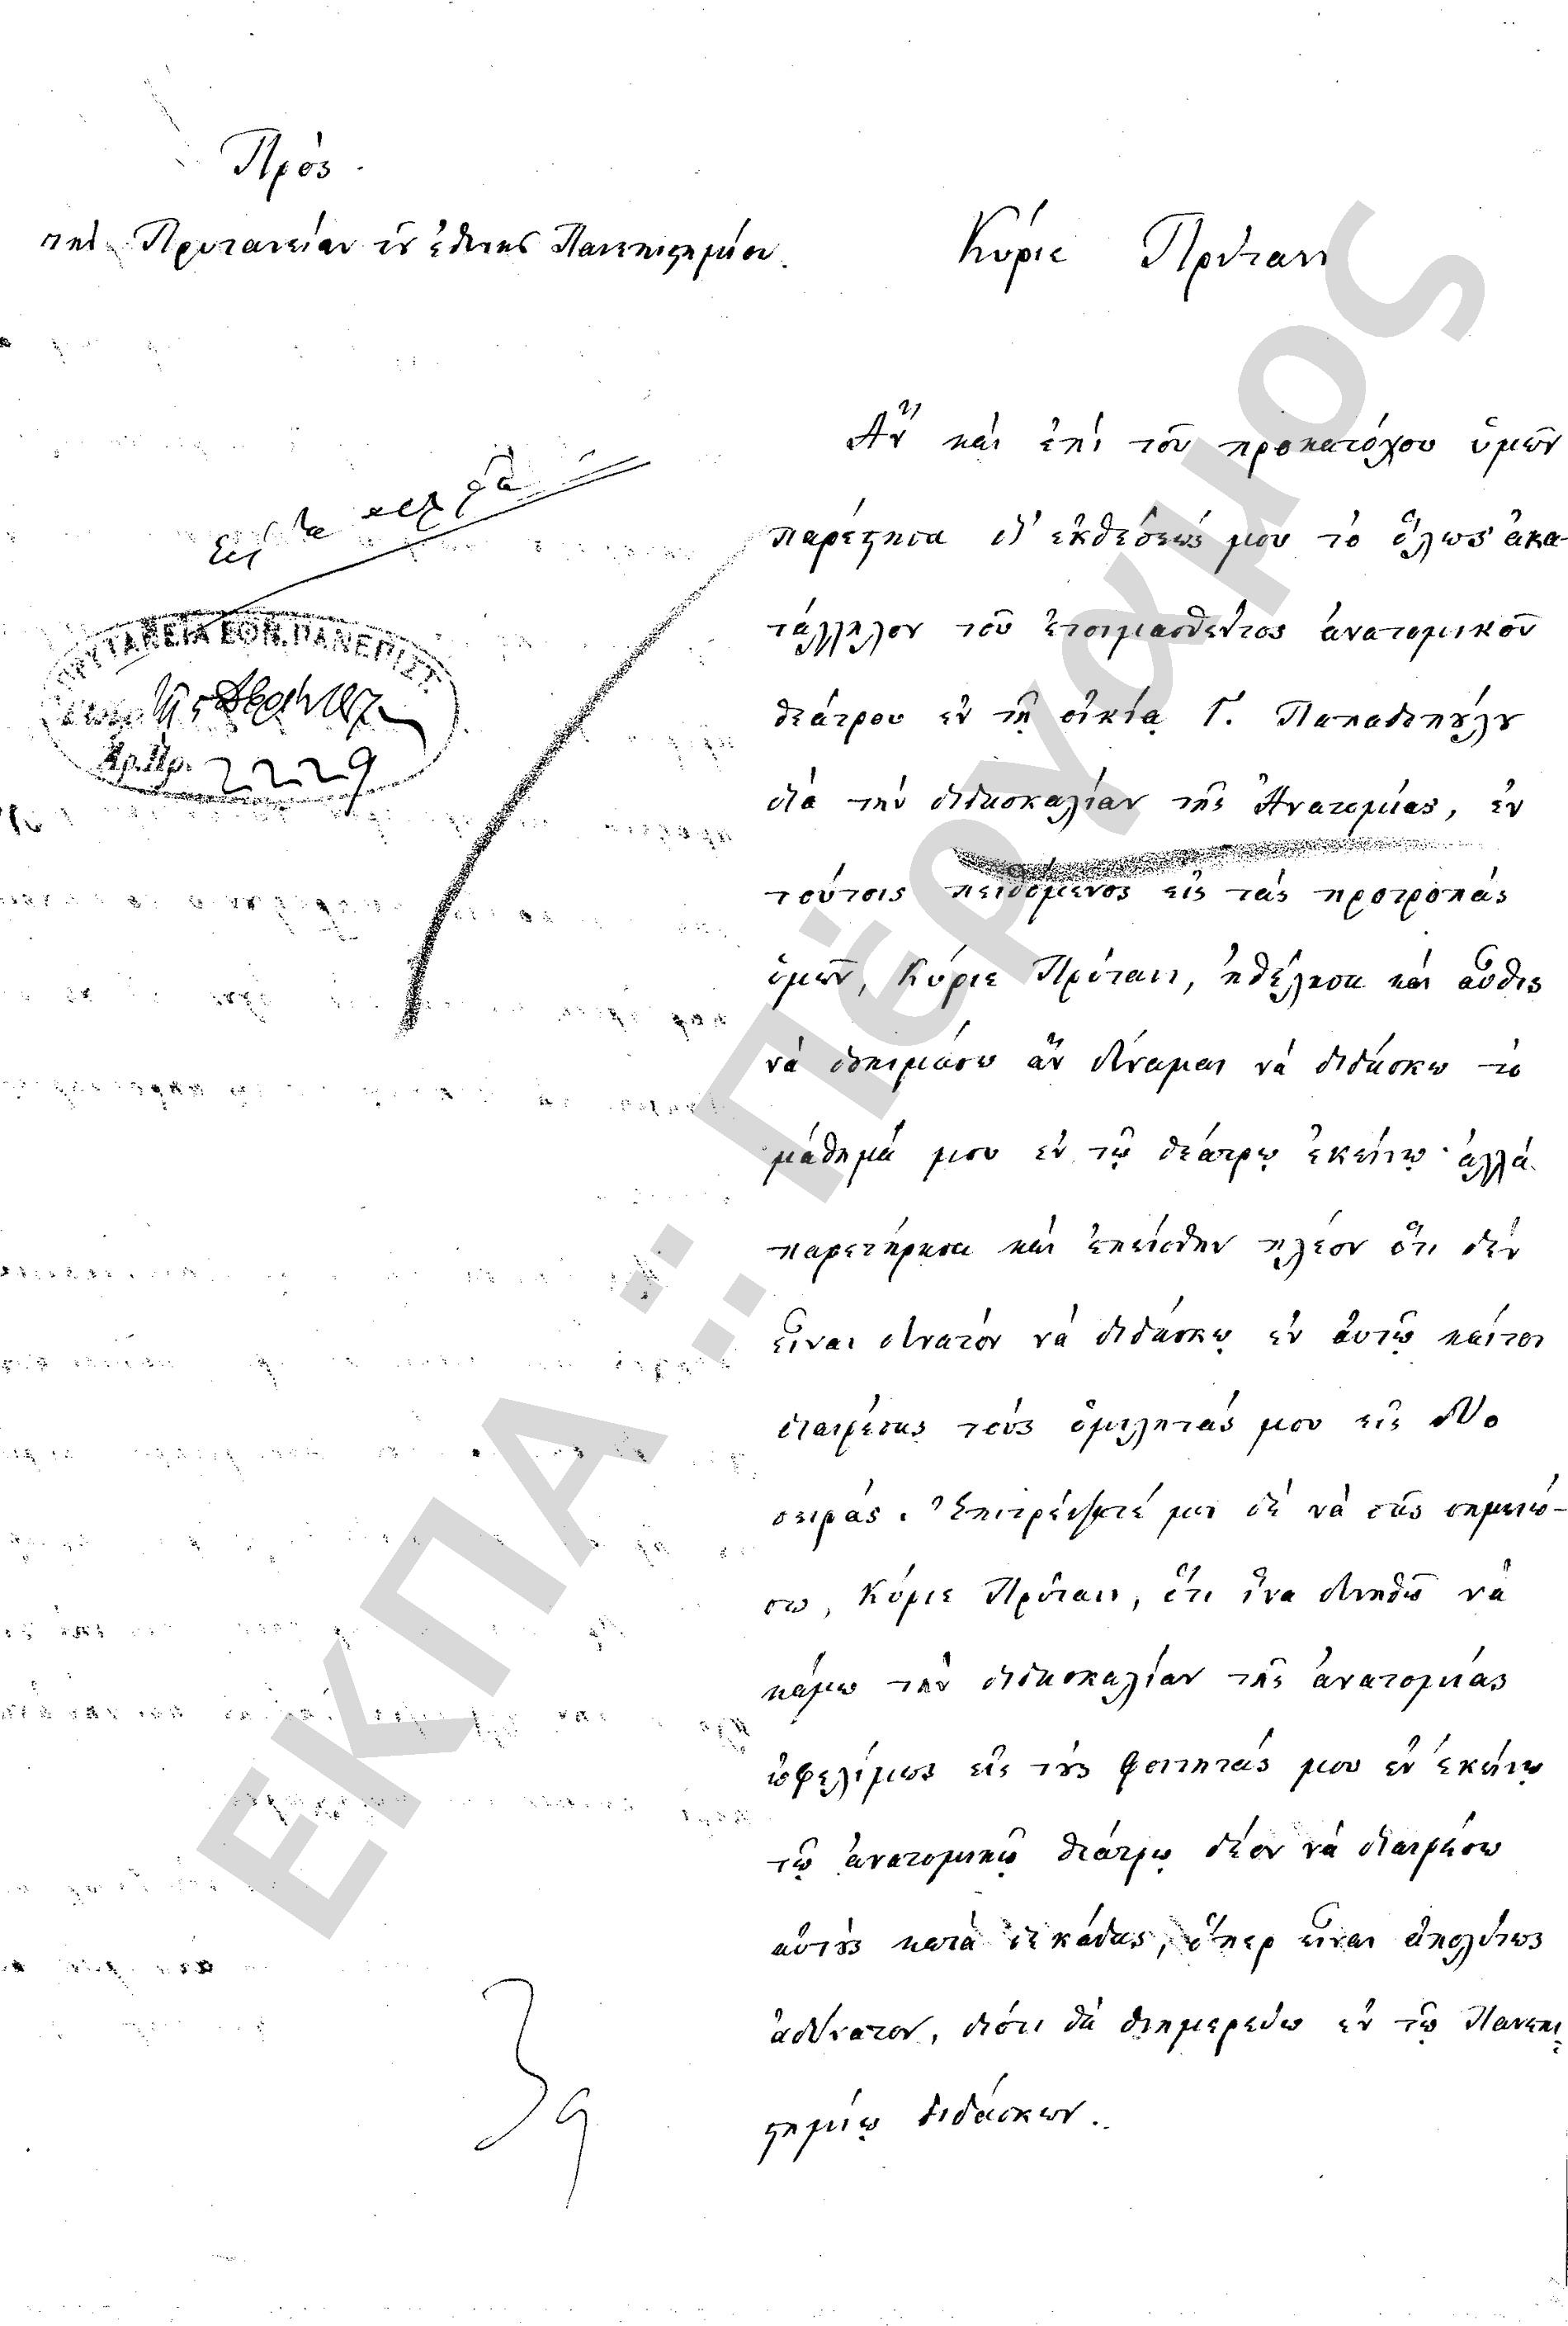 Πρὸς
τὴν Πρυτανείαν τοῦ ἐθνικοῦ Πανεπιστημίου.
Εἰς τὰ
ΠΡΥΤΑΝΕΙΑ ΕΘΝ. ΠΑΝΕΠΙΣΤ.
Ἀρ. Πρ. 2229
Κύριε Πρύτανι
Ἂν καὶ ἐπὶ τοῦ προκατόχου ὑμῶν
παρέστησα δι' ἐκθέσεώς μου τὸ ὅλως ἀκα-
τάλληλον τοῦ ἑτοιμασθέντος ἀνατομικοῦ
θεάτρου ἐν τῇ οἰκίᾳ Γ. Παπαδοπούλου
διὰ τὴν διδασκαλίαν τῆς Ἀνατομίας, ἐν
τούτοις πειθόμενος εἰς τὰς προτροπάς
ὑμῶν, Κύριε Πρύτανι, ἠθέλησα καὶ αὖθις
νὰ δοκιμάσω ἂν δύναμαι νὰ διδάσκω τὸ
μάθημά μου ἐν τῷ θεάτρῳ ἐκείνῳ· ἀλλά
παρετήρησα καὶ ἐπείσθην πλέον ὅτι δέν
εἶναι δυνατόν νὰ διδάσκῳ ἐν αὐτῷ καίτοι
διαιρέσας τοὺς ὁμιλητάς μου εἰς δύο
σειράς. Ἐπιτρέψατέ μοι δὲ νὰ σᾶς σημειώ-
σω, Κύριε Πρύτανι, ὅτι ἵνα δυνηθῶ νὰ
κάμω τὴν διδασκαλίαν τῆς ἀνατομίας
ὠφελίμως εἰς τοὺς φοιτητάς μου ἐν ἐκείνῳ
τῷ ἀνατομικῷ θεάτρῳ δέον νὰ διαιρέσω
αὐτοὺς κατὰ δεκάδας, ὅπερ εἶναι ἀπολύτως
ἀδύνατον, διότι θὰ διημερεύω ἐν τῷ Πανεπι-
στημίῳ διδάσκων.
39
ΕΚΠΑ :: Πέργαμος